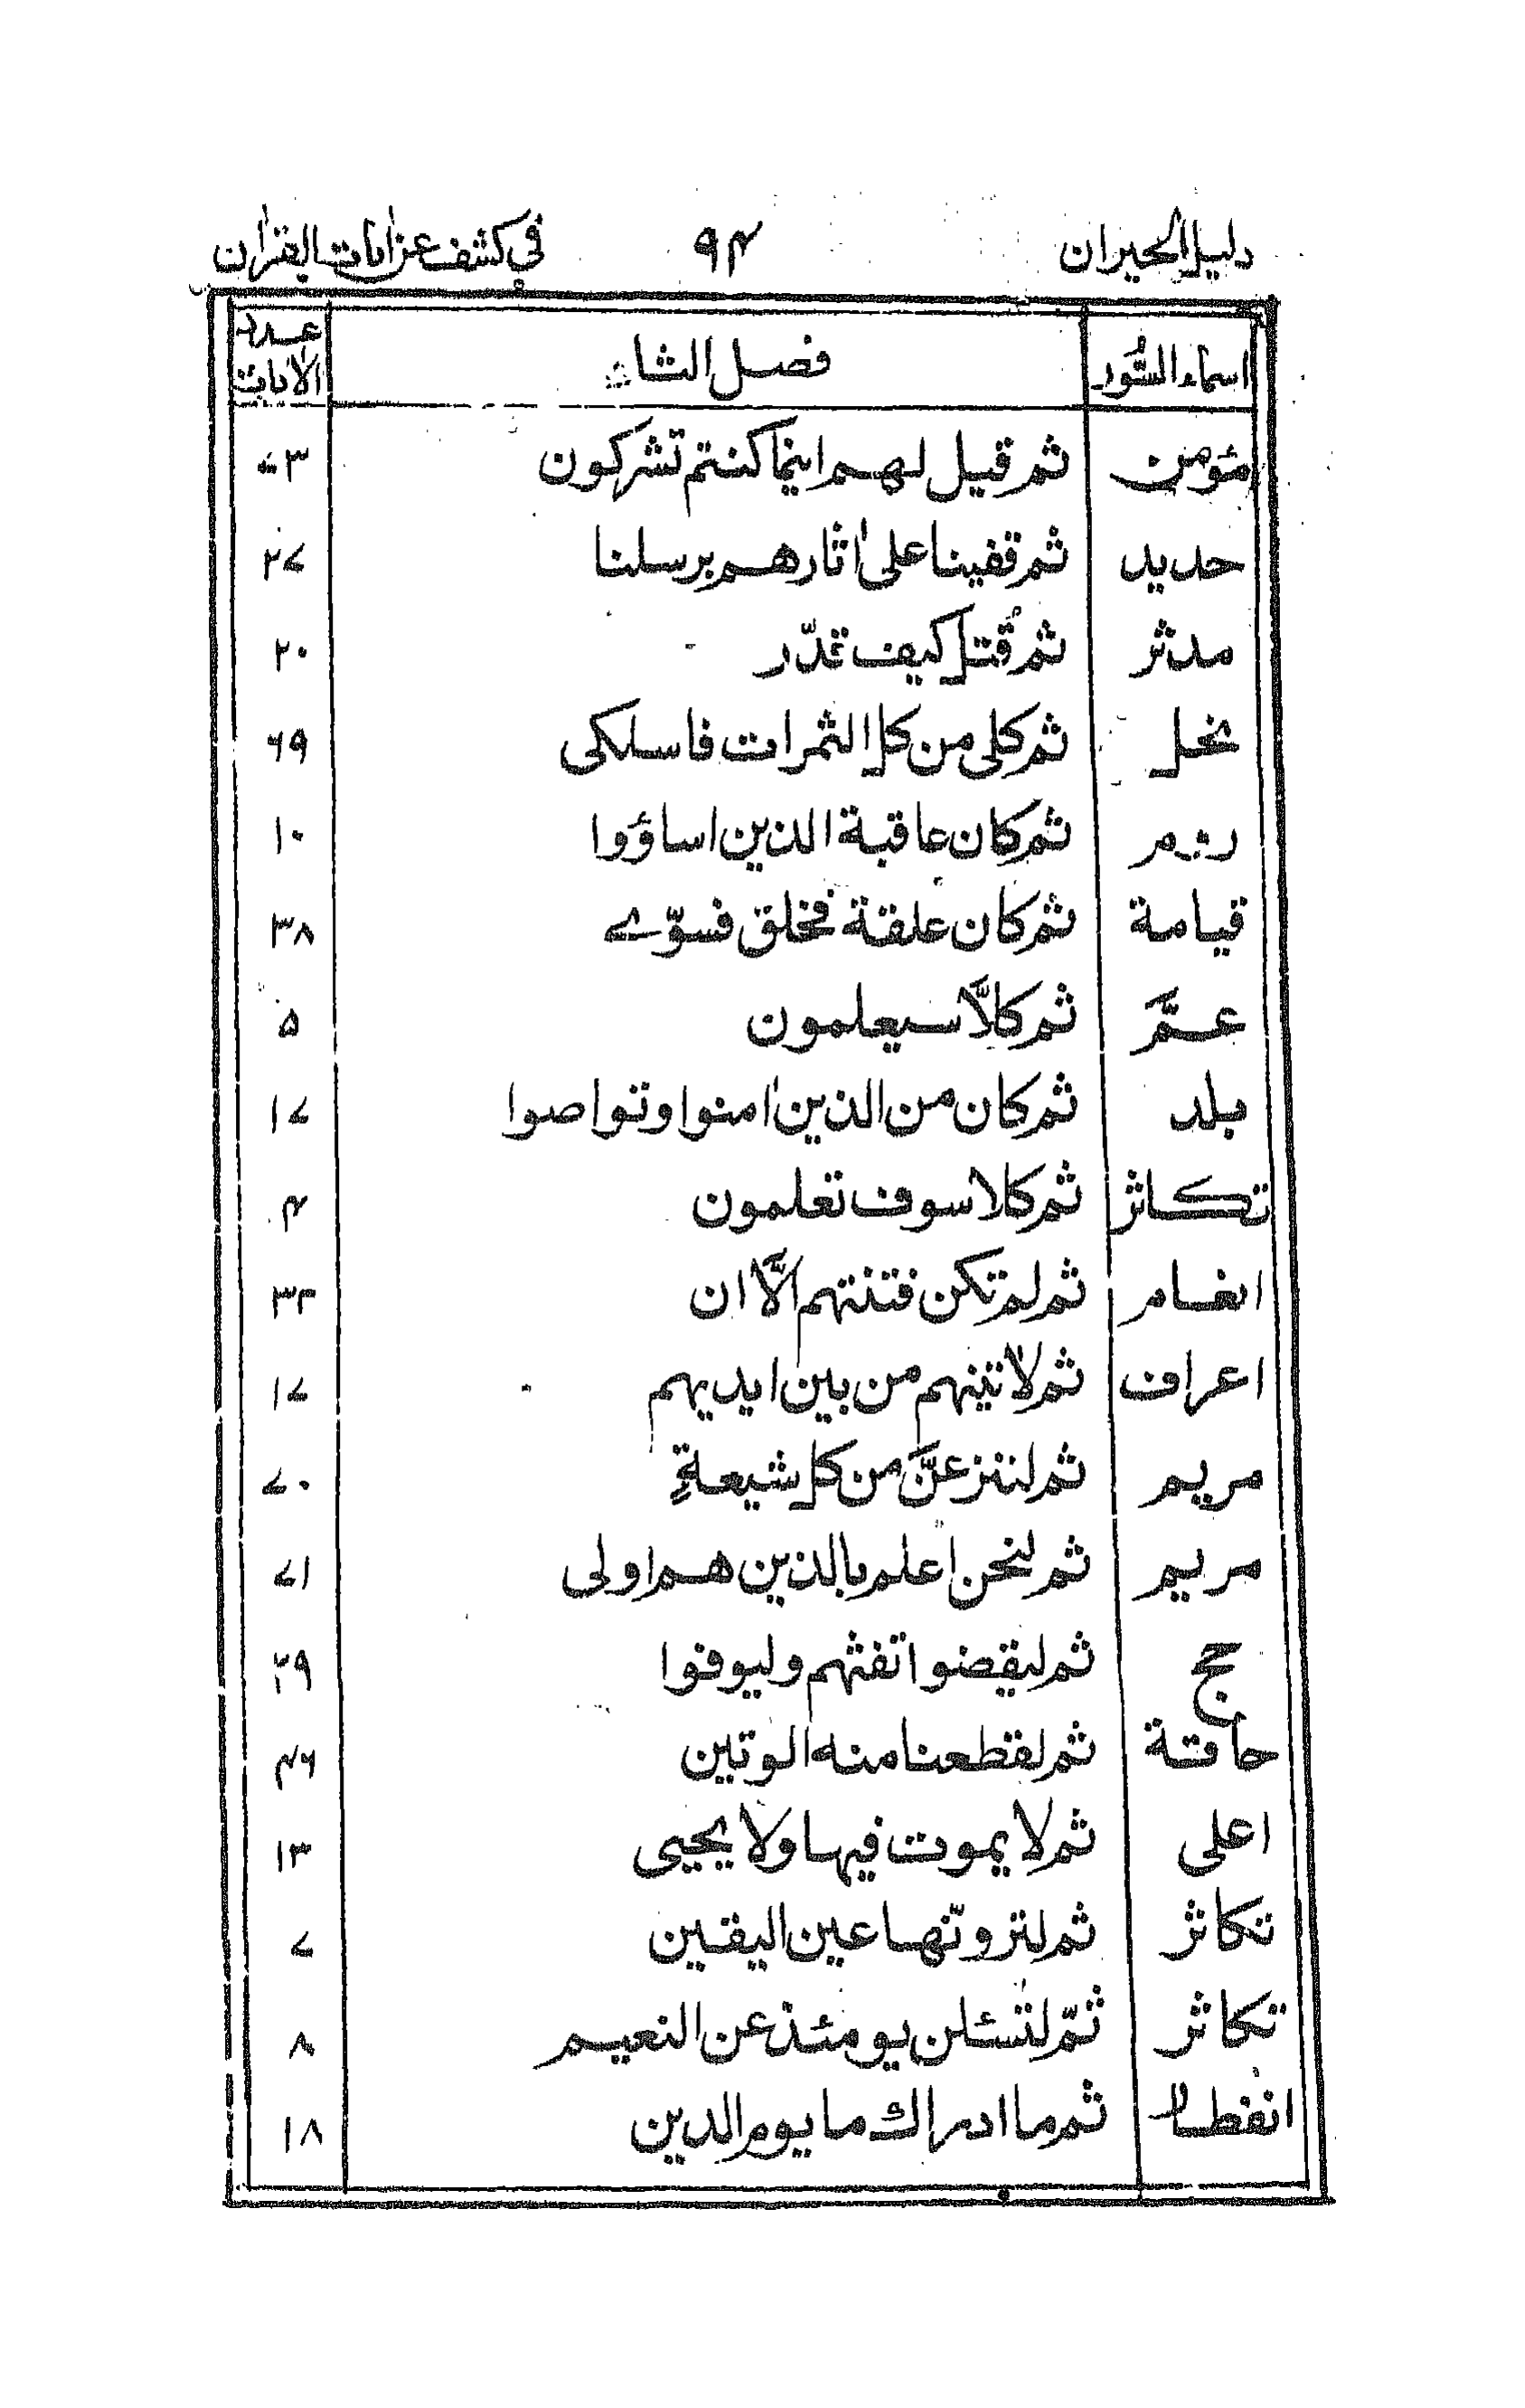 دليل الحيران ۹۴ في كشف عن ايات القران
اسماء السُّور فصل الثاء عدد الآيات
مؤمن ثم قيل لهم اينما كنتم تشركون
حديد ثم قفينا على اثارهم برسلنا ۲۷
مدثر ثم قُتل كيف قدّر ۲۰
نحل ثم كلى من كل الثمرات فاسلكى ۶۹
روم ثم كان عاقبة الذين اساؤوا ۱۰
قيامة ثم كان علقة فخلق فسوّے ۳۸
عمَّ ثم كلَّا سيعلمون ۵
بلد ثم كان من الذين امنوا وتواصوا ۱۷
تكاثر ثم كلا سوف تعلمون ۴
انعام ثم لم تكن فتنتهم الَّا ان ۲۳
اعراف ثم لاتينهم من بين ايديهم ۱۷
مريم ثم لننزعنَّ من كل شيعةٍ ۷۰
مريم ثم لنحن اعلم بالذين هم اولى ۷۱
حج ثم ليقضوا تفثهم وليوفوا ۲۹
حاقة ثم لقطعنا منه الوتين ۴۶
اعلى ثم لا يموت فيها ولا يحيى ۱۳
تكاثر ثم لتروتّها عين اليقين ۷
تكاثر ثمّ لتسئلن يومئذ عن النعيم ۸
انفطار ثم ما ادراك ما يوم الدين ۱۸